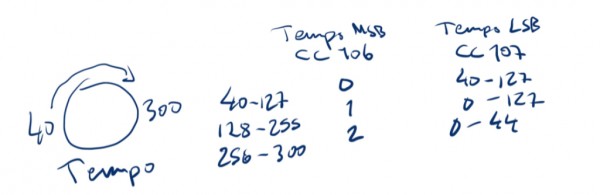 Tempo MSB
CC 106
Tempo LSB
CC 107
40
300
Tempo
40-127
0
40-127
128-255
1
0-127
256-300
2
0-44